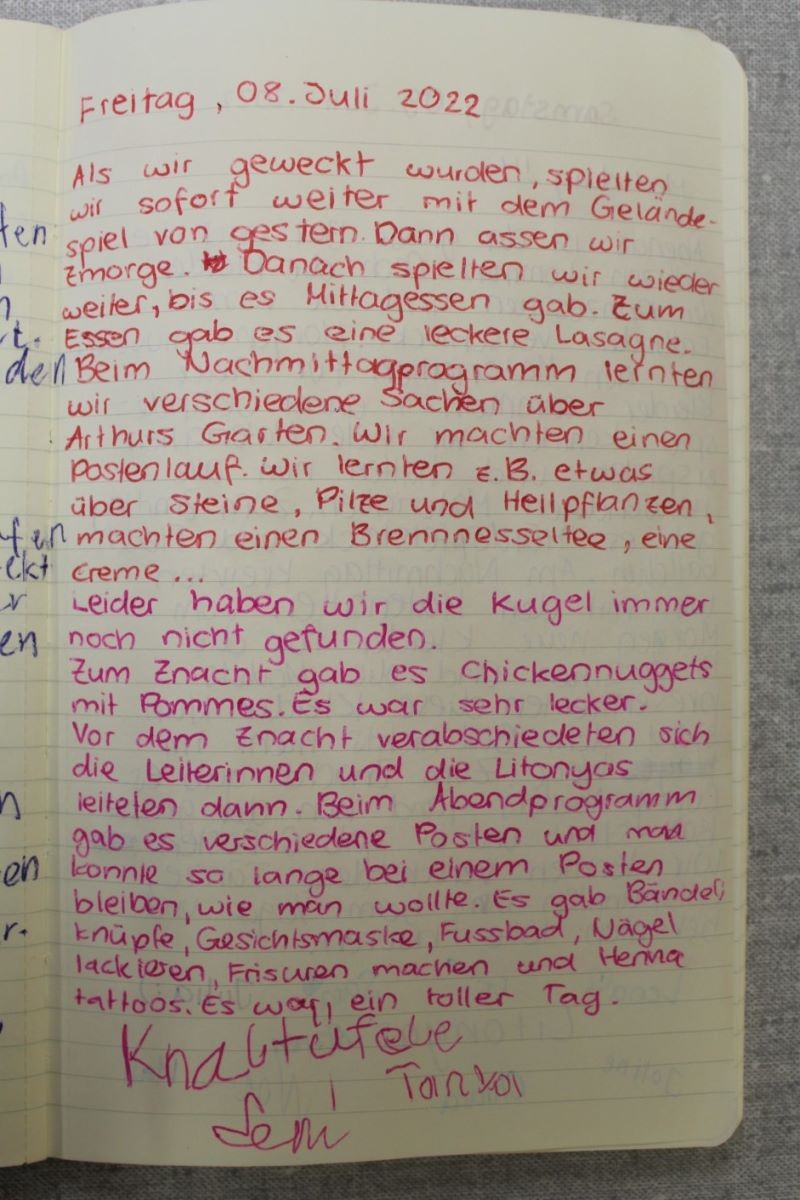 Freitag, 08. Juli 2022
Als wir geweckt wurden, spielten
wir sofort weiter mit dem Gelände-
spiel von gestern. Dann assen wir
zmorge. Danach spielten wir wieder
weiter, bis es Mittagessen gab. Zum
Essen gab es eine leckere Lasagne.
Beim Nachmittagprogramm lernten
wir verschiedene Sachen über
Arthurs Garten. Wir machten einen
Postenlauf. Wir lernten z.B. etwas
über Steine, Pilze und Heilpflanzen,
machten einen Brennnesseltee, eine
creme...
Leider haben wir die Kugel immer
noch nicht gefunden.
Zum Znacht gab es Chickennuggets
mit Pommes. Es war sehr lecker.
Vor dem Znacht verabschiedeten sich
die Leiterinnen und die Litonyas
leiteten dann. Beim Abendprogramm
gab es verschiedene Posten und man
konnte so lange bei einem Posten
bleiben, wie man wollte. Es gab Bändeli
knüpfe, Gesichtsmaske, Fussbad, Nägel
lackieren, Frisuren machen und Henna
tattoos. Es war ein toller Tag.